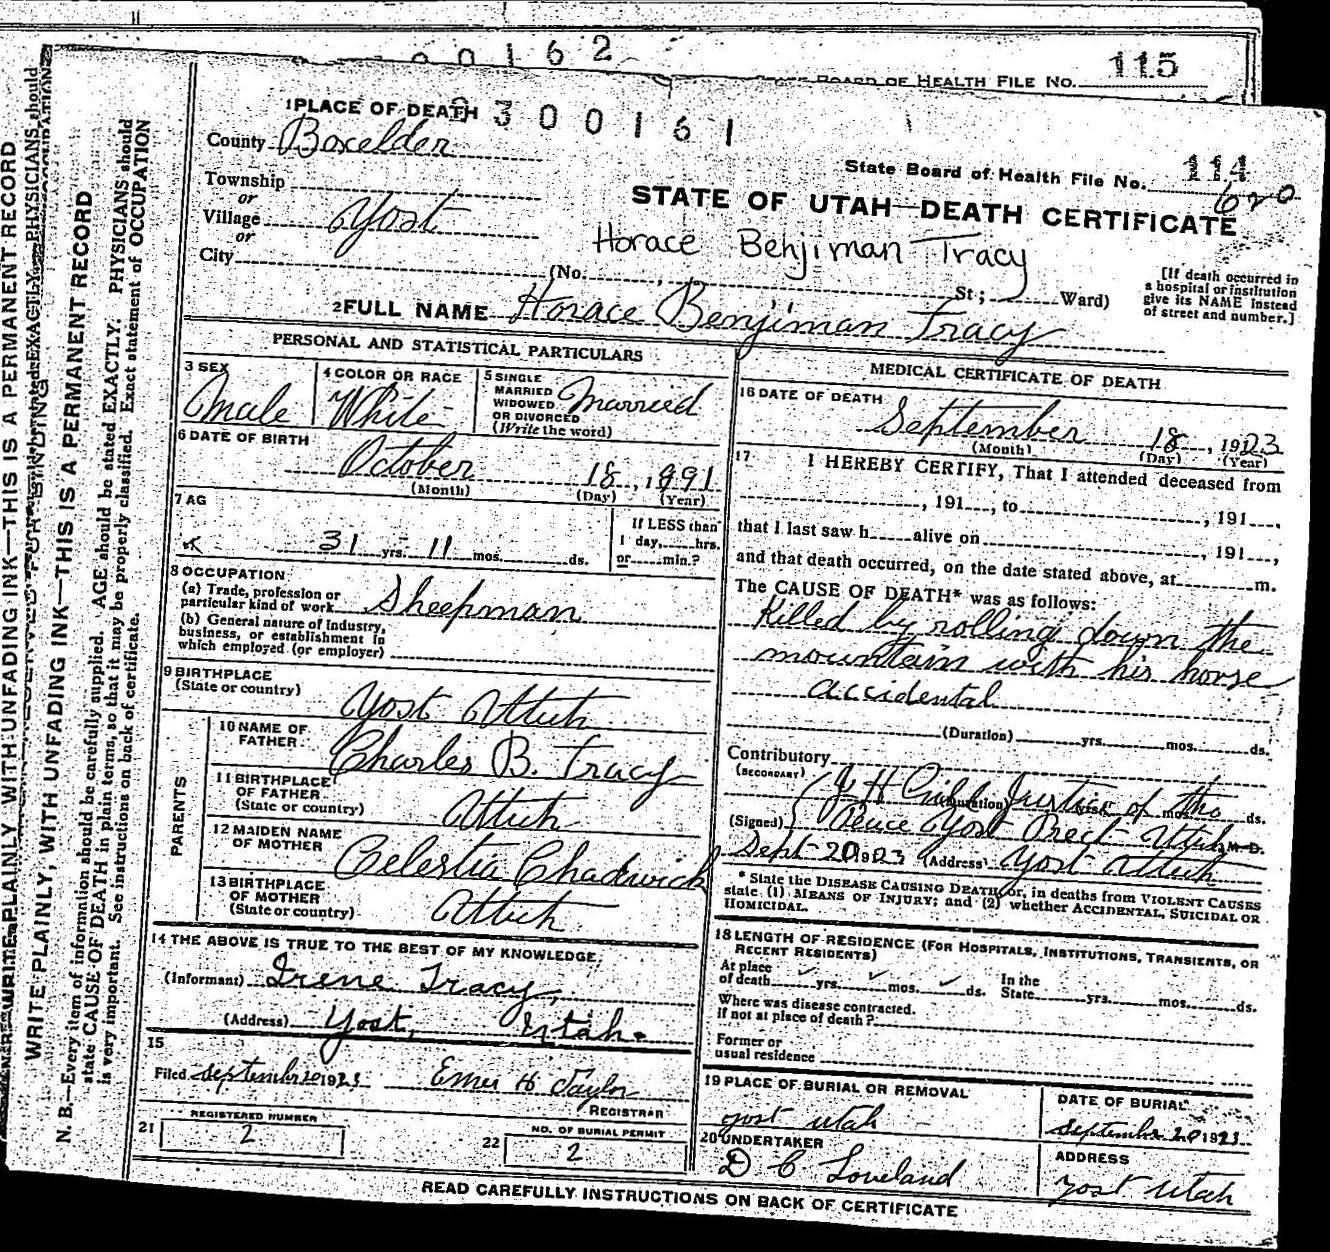 00162
115
BOARD OF HEALTH FILE NO.
1 PLACE OF DEATH 2300161
County Boxelder
State Board of Health File No. 114
620
Township
or
Village Yost
or
City
STATE OF UTAH—DEATH CERTIFICATE
Horace Benjiman Tracy
(No. St; Ward)
[If death occurred in
a hospital or institution
give its NAME instead
of street and number.]
2 FULL NAME Horace Benjiman Tracy
PERSONAL AND STATISTICAL PARTICULARS
3 SEX
Male
4 COLOR OR RACE
White
5 SINGLE
MARRIED
WIDOWED
OR DIVORCED
(Write the word)
Married
6 DATE OF BIRTH
October 18, 1891
(Month) (Day) (Year)
7 AG
31 yrs. 11 mos. ds.
If LESS than
1 day, hrs.
or min.?
8 OCCUPATION
(a) Trade, profession or
particular kind of work Sheepman
(b) General nature of Industry,
business, or establishment in
which employed (or employer)
9 BIRTHPLACE
(State or country)
Yost Uttuh
PARENTS
10 NAME OF
FATHER
Charles B. Tracy
11 BIRTHPLACE
OF FATHER
(State or country)
Uttuh
12 MAIDEN NAME
OF MOTHER
Celestia Chadwick
13 BIRTHPLACE
OF MOTHER
(State or country)
Uttuh
14 THE ABOVE IS TRUE TO THE BEST OF MY KNOWLEDGE
(Informant) Irene Tracy,
(Address) Yost, Utah.
15
Filed September 20 1923 H Taylor
REGISTRAR
21 REGISTERED NUMBER
2
22 NO. OF BURIAL PERMIT
2
MEDICAL CERTIFICATE OF DEATH
16 DATE OF DEATH
September 18, 1923
(Month) (Day) (Year)
17 I HEREBY CERTIFY, That I attended deceased from
, 191 , to , 191 ,
that I last saw h alive on , 191 ,
and that death occurred, on the date stated above, at m.
The CAUSE OF DEATH* was as follows:
Killed by rolling down the
mountain with his horse
accidental
(Duration) yrs. mos. ds.
Contributory
(SECONDARY)
J H Justice of the
(Duration) yrs. mos. ds.
(Signed) Peace Yost Prect Uttuh M. D.
Sept 20 1923 (Address) Yost Uttuh
* State the DISEASE CAUSING DEATH, or, in deaths from VIOLENT CAUSES
state (1) MEANS OF INJURY; and (2) whether ACCIDENTAL, SUICIDAL OR
HOMICIDAL.
18 LENGTH OF RESIDENCE (FOR HOSPITALS, INSTITUTIONS, TRANSIENTS, OR
RECENT RESIDENTS)
At place
of death yrs. mos. ds.
In the
State yrs. mos. ds.
Where was disease contracted.
if not at place of death?
Former or
usual residence
19 PLACE OF BURIAL OR REMOVAL
yost utah
DATE OF BURIAL
September 20 1923
20 UNDERTAKER
D C Loveland
ADDRESS
yost utah
READ CAREFULLY INSTRUCTIONS ON BACK OF CERTIFICATE
WRITE PLAINLY WITH UNFADING INK—THIS IS A PERMANENT RECORD
WRITE PLAINLY, WITH UNFADING INK—THIS IS A PERMANENT RECORD
N. B.—Every item of information should be carefully supplied. AGE should be stated EXACTLY. PHYSICIANS should
state CAUSE OF DEATH in plain terms, so that it may be properly classified. Exact statement of OCCUPATION
is very important. See instructions on back of certificate.